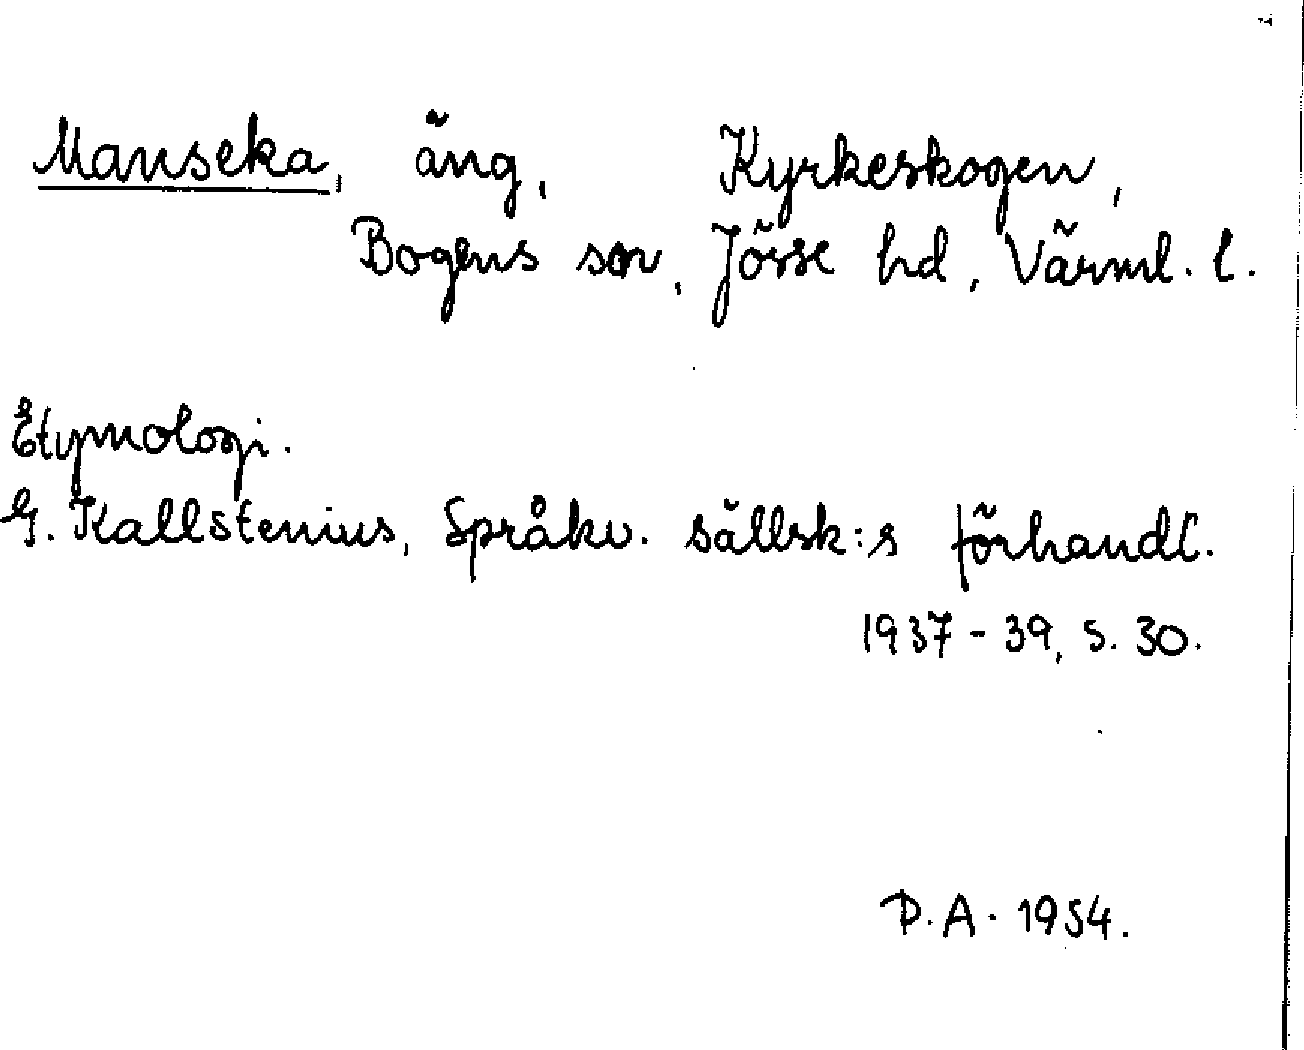 Manseka, äng, Kyrkeskogen,
Bogens sn, Jösse hd, Värml. l.
Etymologi.
G. Kallstenius, Språkv. sällsk:s förhandl.
1937-39, s. 30.
D. A. 1954.